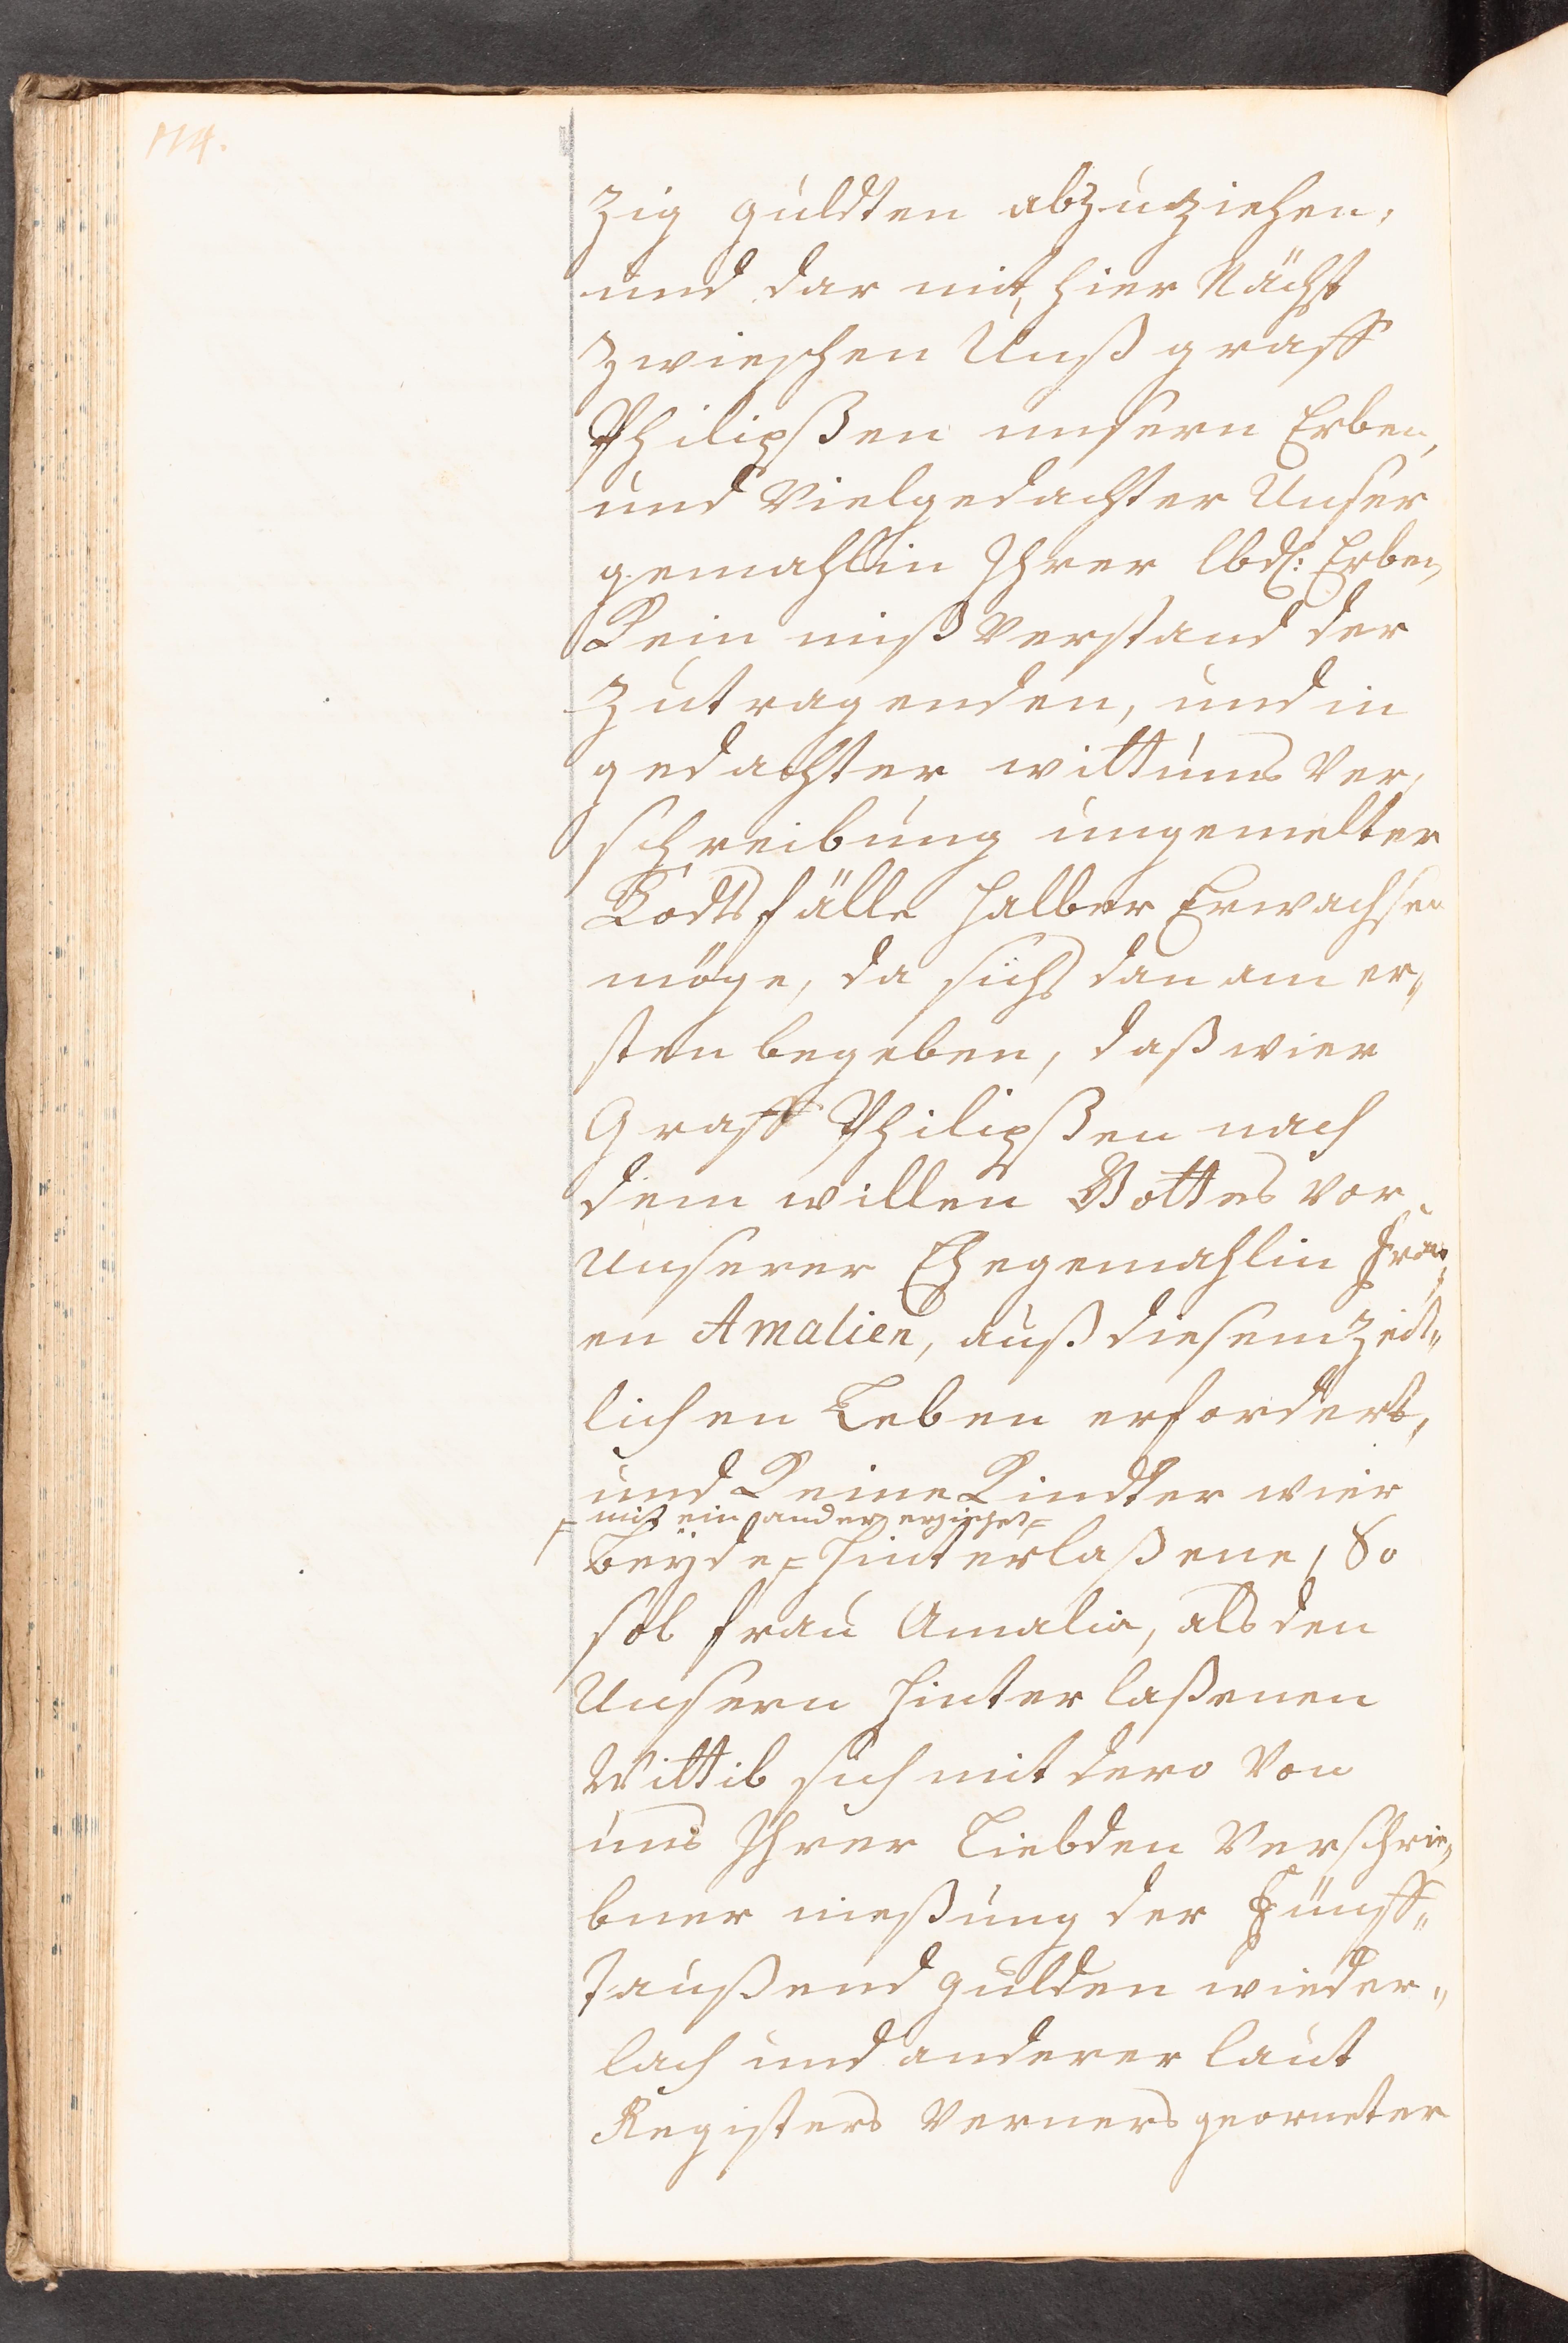 114.
zig guldten abzuziehen,
und dar mit hier Nächst
zwieschen Unß graff
Philipßen unsern Erben,
und Vielgedachter Unser
gemahllin Ihrer lbd: Erben
Kein miß Verstand der
zutragenden, und in
gedachter wittums Ver,
schreibung ungemelter
Todtsfälle halber Erwachsen
möge, da sichs dan am er„
sten begeben, daß wier
Graff Philipßen nach
dem willen Gottes vor
Unserer Ehegemahlin Frau,
en Amalien, auß diesem zeit„
lichen Leben erfordert,
und Keine Kindter wier
= mit ein ander erziehet =
beyde = hinterlaßene, So
sol frau Amalia, als den
Unsern hinter laßenen
Wittib sich mit dero Von
uns Ihrer Liebden Verschrie,
bner nießung der Fünff„
taußend gulden wieder„
lach und anderer laut
Registers Verners georneter